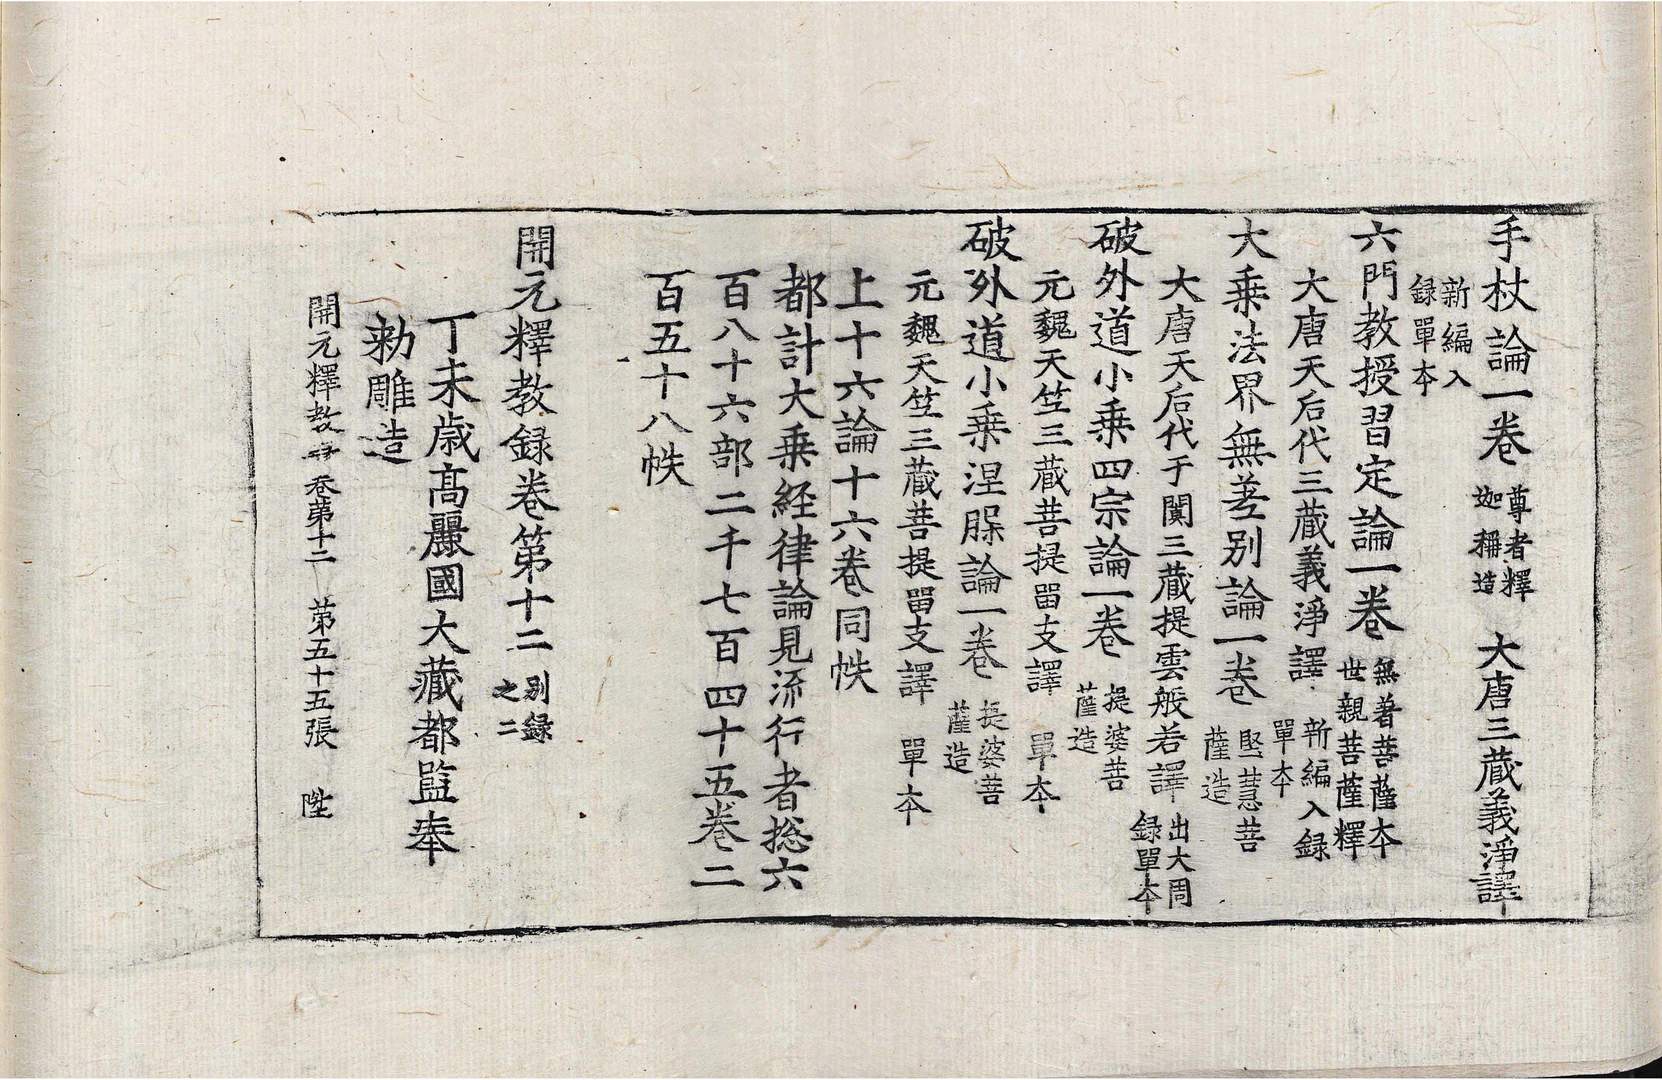 手杖論一卷 尊者釋迦稱造 大唐三藏義淨譯
新編入錄單本
六門教授習定論一卷 無著菩薩本世親菩薩釋
大唐天后代三藏義淨譯 新編入錄單本
大乘法界無差別論一卷 堅慧菩薩造
大唐天后代于闐三藏提雲般若譯 出大周錄單本
破外道小乘四宗論一卷 提婆菩薩造
元魏天竺三藏菩提留支譯 單本
破外道小乘涅槃論一卷 提婆菩薩造
元魏天竺三藏菩提留支譯 單本
上十六論十六卷同帙
都計大乘経律論見流行者揔六
百八十六部二千七百四十五卷二
百五十八帙
開元釋教錄卷第十二 別錄之二
丁未歲高麗國大藏都監奉
勑雕造
開元釋教 卷第十二 第五十五張 陛